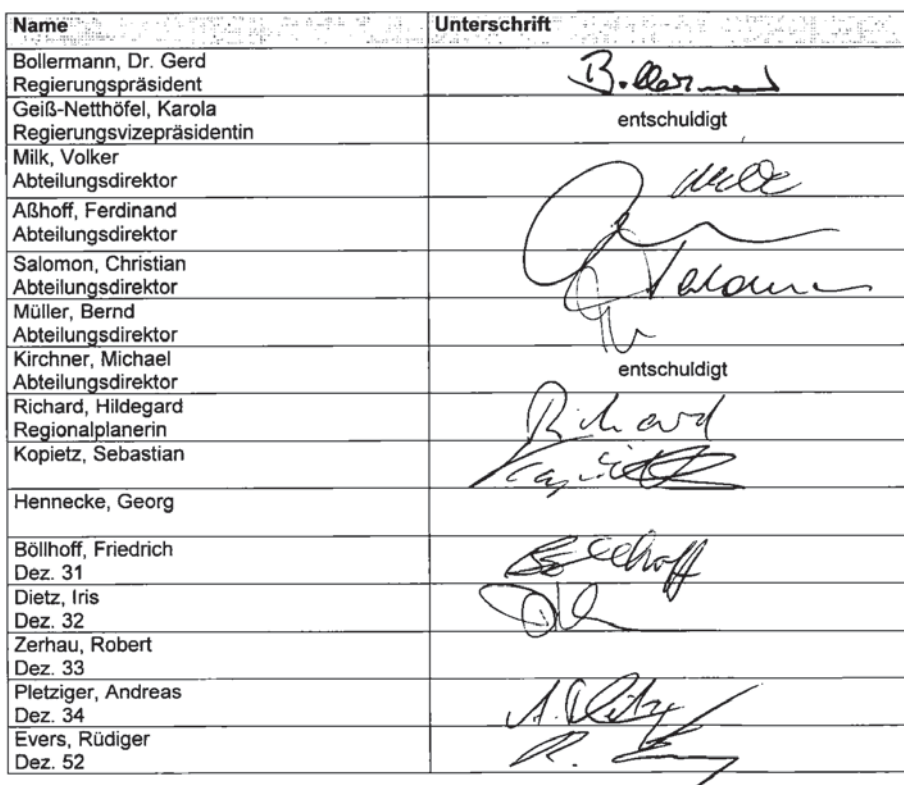 Name Unterschrift
Bollermann, Dr. Gerd
Regierungspräsident
Geiß-Netthöfel, Karola
Regierungsvizepräsidentin
entschuldigt
Milk, Volker
Abteilungsdirektor
Aßhoff, Ferdinand
Abteilungsdirektor
Salomon, Christian
Abteilungsdirektor
Müller, Bernd
Abteilungsdirektor
Kirchner, Michael
Abteilungsdirektor
entschuldigt
Richard, Hildegard
Regionalplanerin
Richard
Kopietz, Sebastian
Hennecke, Georg
Böllhoff, Friedrich
Dez. 31
Dietz, Iris
Dez. 32
Zerhau, Robert
Dez. 33
Pletziger, Andreas
Dez. 34
Evers, Rüdiger
Dez. 52